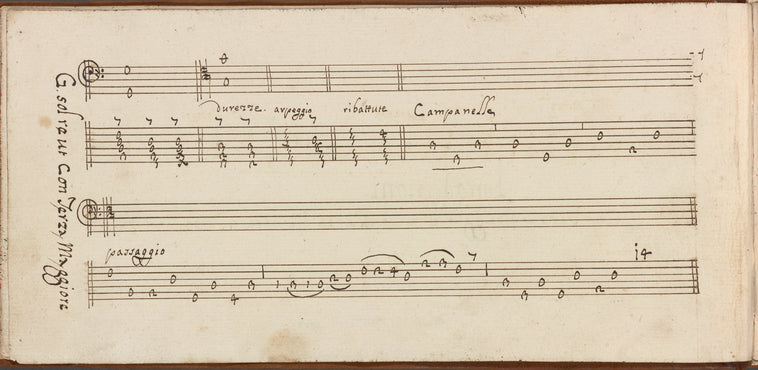 G. sol re ut Con Terza Maggiore
durezze. arpeggio ribattute Campanelle
passaggio
14